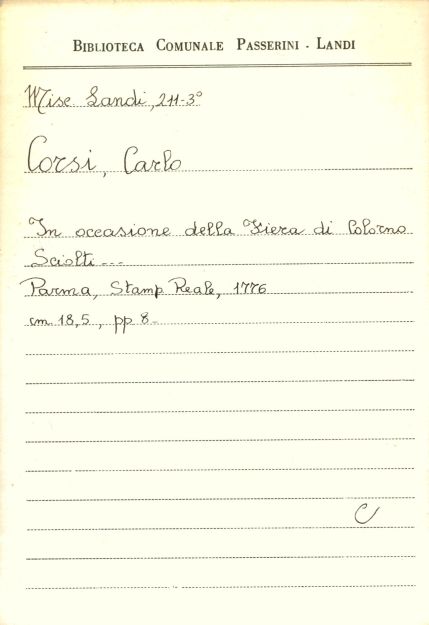 BIBLIOTECA COMUNALE PASSERINI - LANDI
Misc Landi, 211-3°
Corsi, Carlo
In occasione della Fiera di Colorno
Sciolti...
Parma, Stamp Reale, 1776
cm 18,5, pp 8.
C